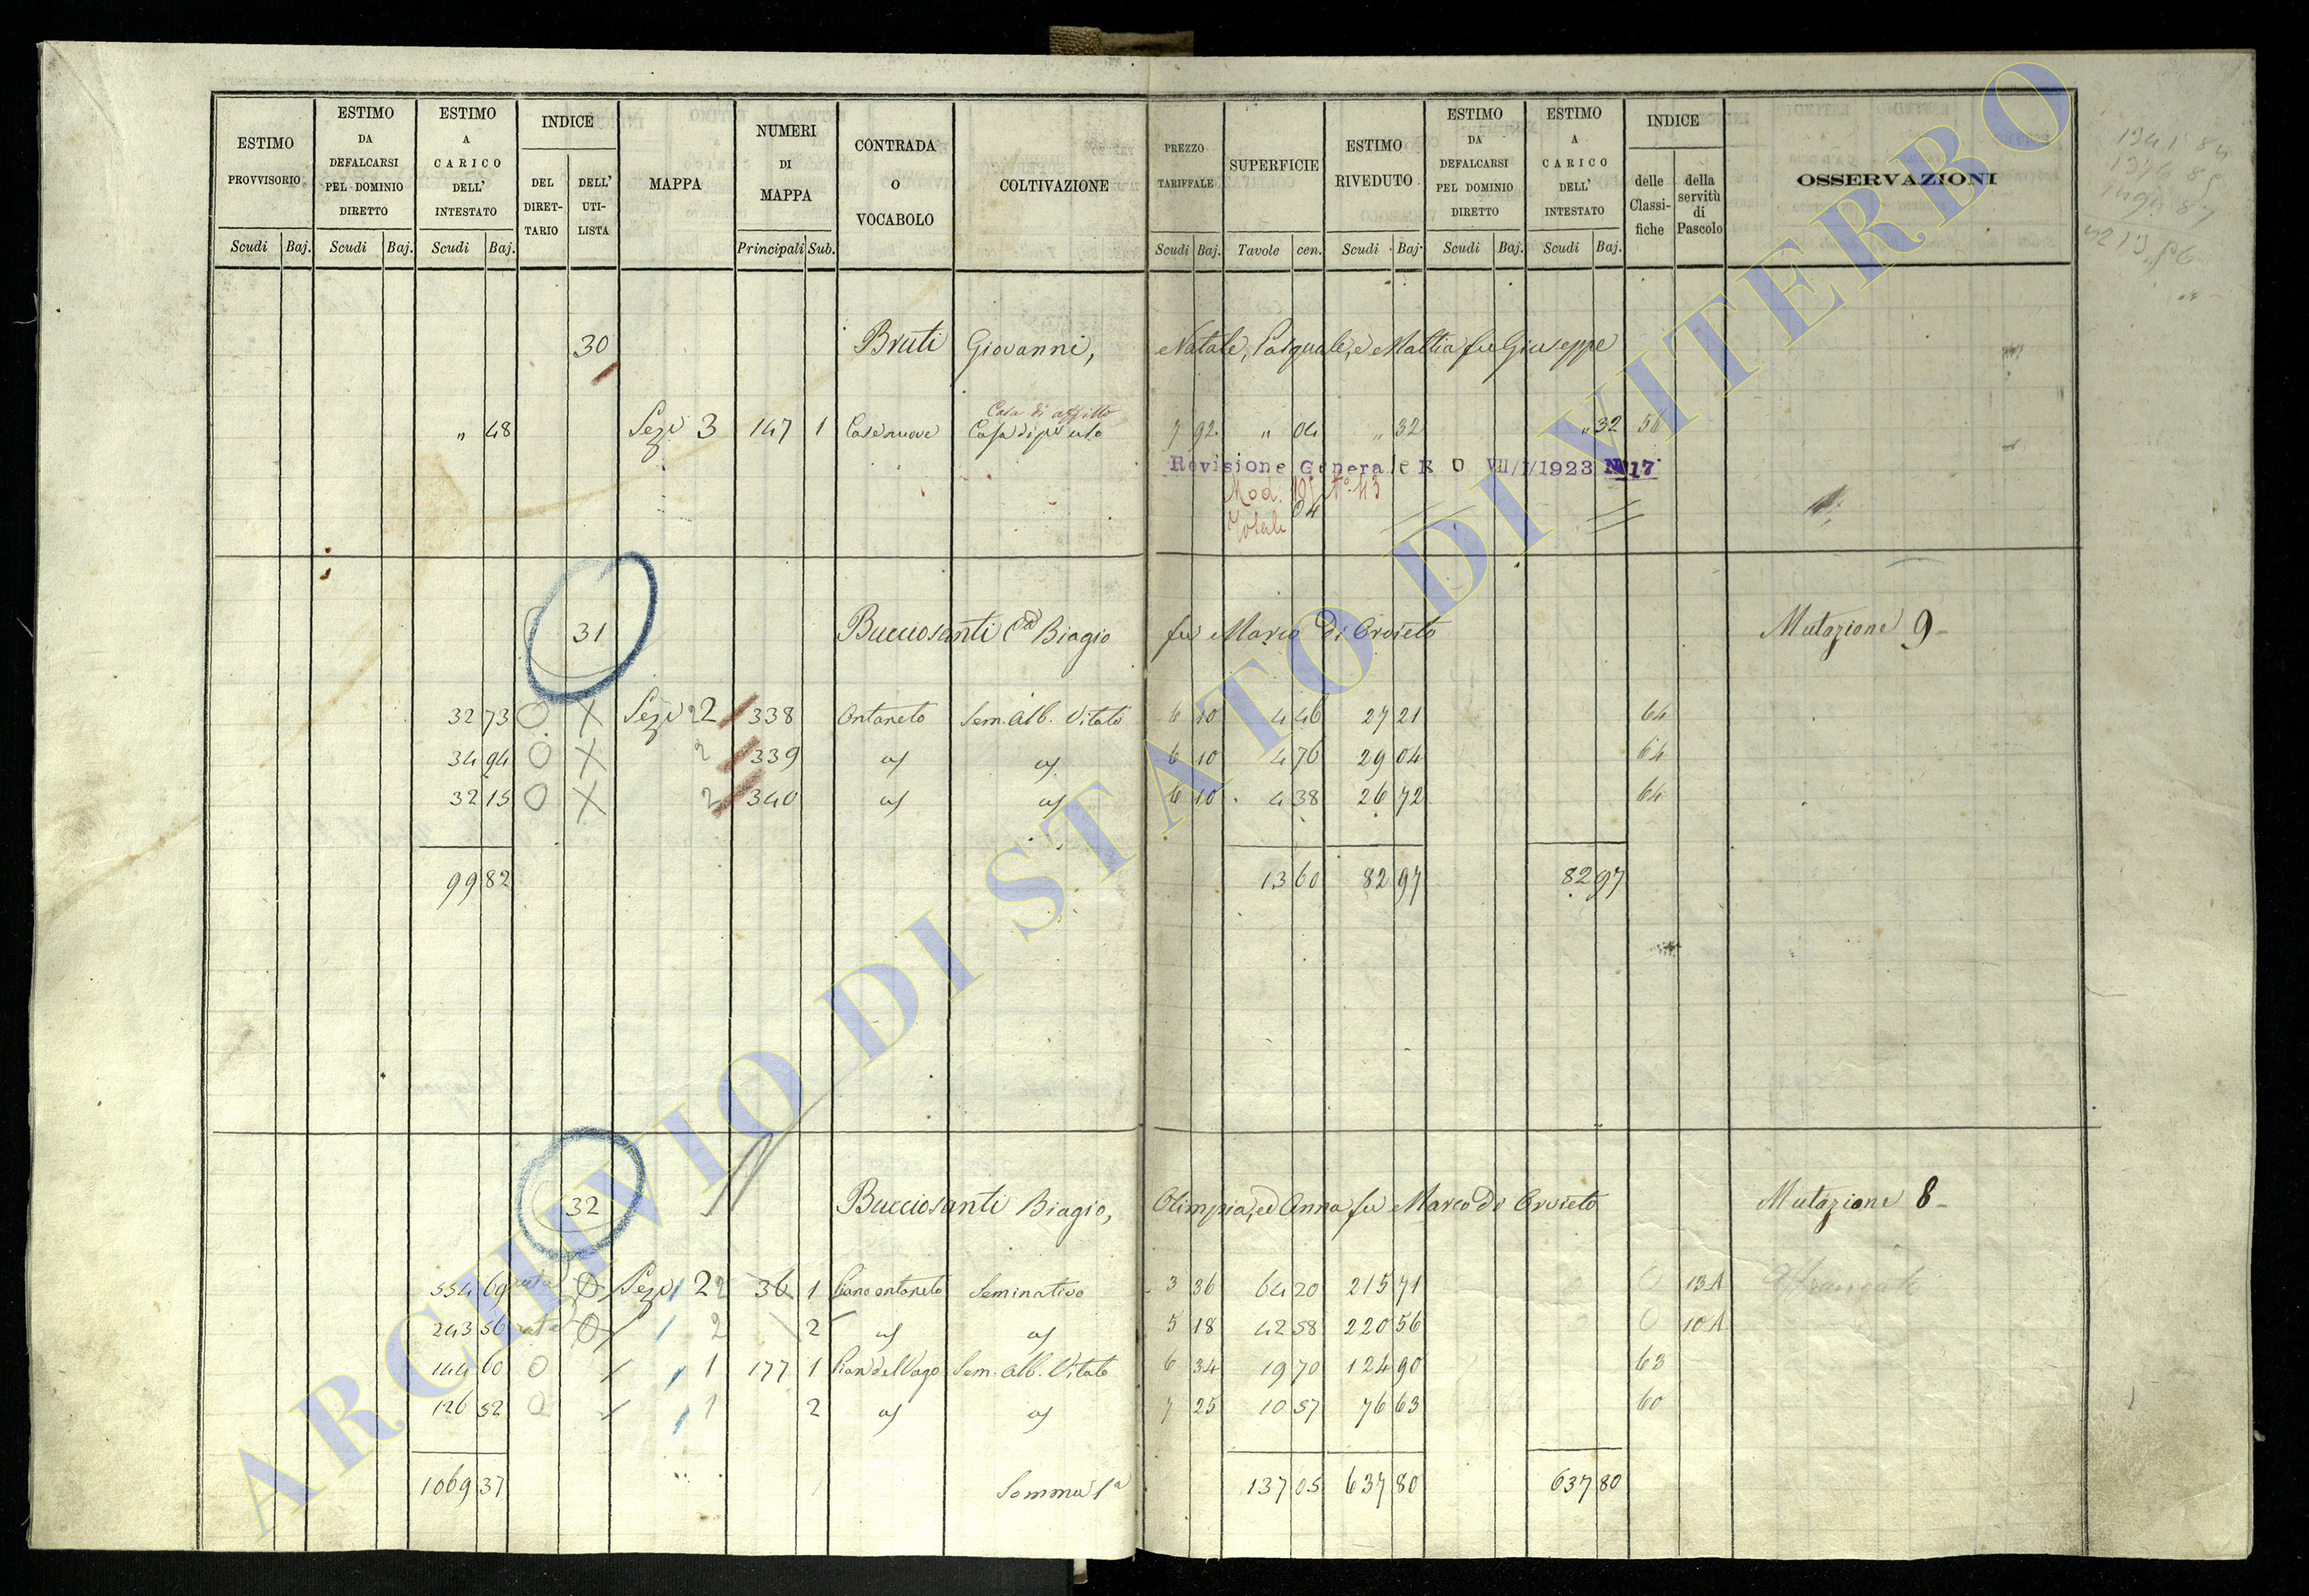 ESTIMO PROVVISORIO
ESTIMO DA DEFALCARSI PEL DOMINIO DIRETTO
ESTIMO A CARICO DELL' INTESTATO
INDICE
DEL DIRET-TARIO
DELL' UTI-LISTA
MAPPA
NUMERI DI MAPPA
CONTRADA O VOCABOLO
COLTIVAZIONE
PREZZO TARIFFALE
SUPERFICIE
ESTIMO RIVEDUTO
ESTIMO DA DEFALCARSI PEL DOMINIO DIRETTO
ESTIMO A CARICO DELL' INTESTATO
INDICE
delle Classi-fiche
della servitù di Pascolo
OSSERVAZIONI
Scudi Baj. Scudi Baj. Scudi Baj. Principali Sub. Scudi Baj. Tavole cen. Scudi Baj. Scudi Baj. Scudi Baj.
30 Bruti Giovanni, Natale, Pasquale, e Mattia fu Giuseppe
Casa di affitto
„ 48 Sezⁿᵉ 3 147 1 Case nuove Casa di pº uso 7 92 „ 04 „ 32 „ 32
Revisione Generale R D VII/I/1923 N 17
Mod. Nº 43
Totale 04
31 Bucciosanti Biagio fu Marco di Orvieto Mutazione 9
32 73 O X Sezⁿᵉ 2 338 Ontaneto Sem. Alb. Vitato 6 10 4 46 27 21 64
34 94 O X 2 339 6 10 4 76 29 04 64
32 15 O X 2 340 6 10 4 38 26 72 64
99 82 13 60 82 97 82 97
32 Bucciosanti Biagio, Olimpia, ed Anna fu Marco di Orvieto Mutazione 8
554 69 Sezⁿᵉ 2 36 1 Piano ontaneto Seminativo 3 36 64 20 215 71 13 A
243 56 2 2 5 18 42 58 220 56 10 A
144 60 O 1 177 1 Pian del Vago Sem. Alb. Vitato 6 34 19 70 124 90 63
126 52 O 1 2 7 25 10 57 76 63 60
1069 37 Somma 1ª 137 05 637 80 637 80
ARCHIVIO DI STATO DI VITERBO